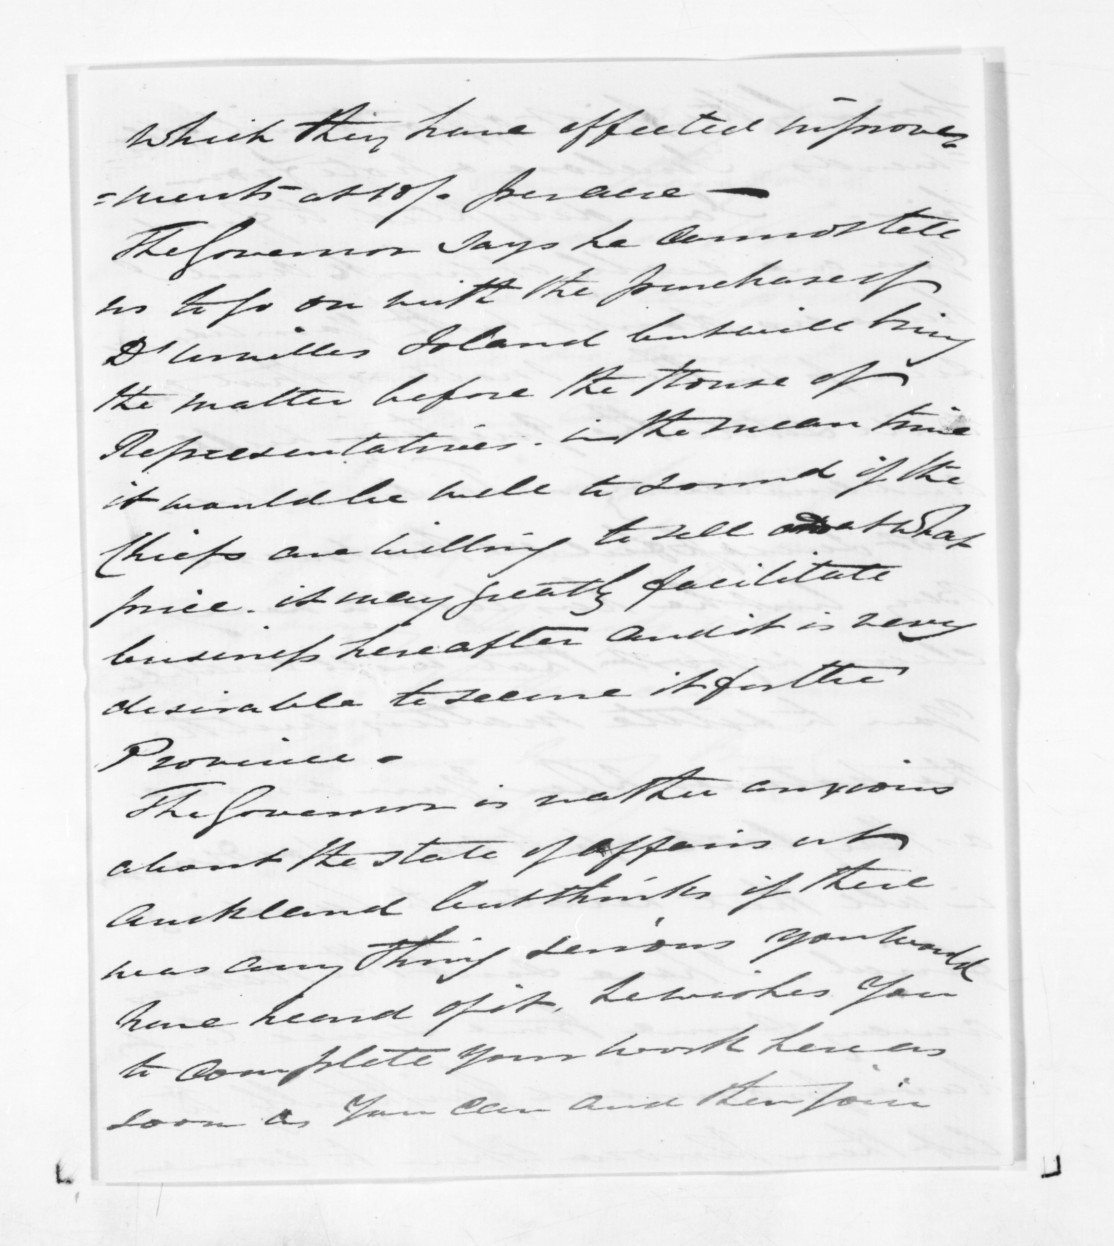 which they have effected improve
=ments at 10/. per acre —
The Governor says he cannot tell
us to go on with the purchase of
D'Urvilles Island but will bring
the matter before the House of
Representatives. in the mean time
it would be well to sound if the
Chiefs are willing to sell at what
price. it may greatly facilitate
business hereafter and it is very
desirable to secure it for the
Province.
The Governor is rather anxious
about the state of affairs at
Auckland but thinks if there
was any thing serious you would
have heard of it, he wishes you
to complete your work here as
soon as you can and then join